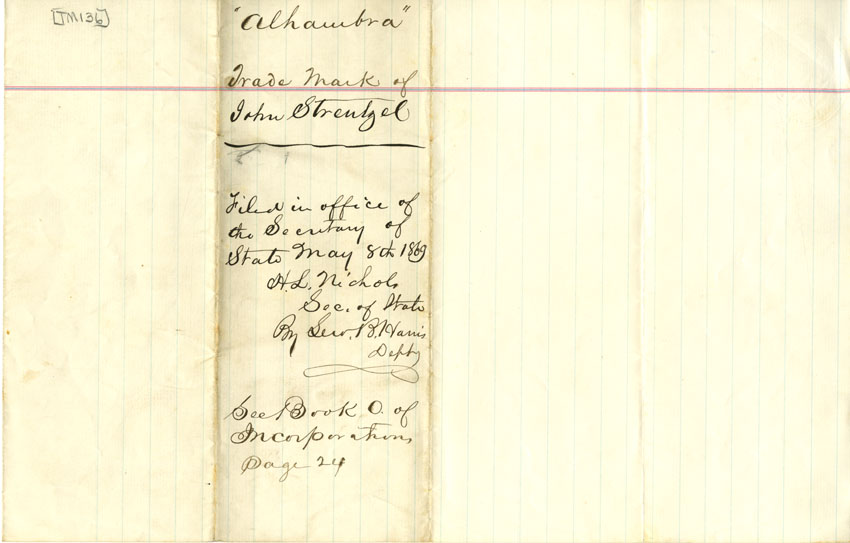 [TM136]
"Alhambra"
Trade Mark of
John Strentzel
Filed in office of
the Secretary of
State May 8th 1869
H.L. Nichols
Sec. of State
By Geo. B. Harris
Depty
See Book O. of
Incorporations
Page 24